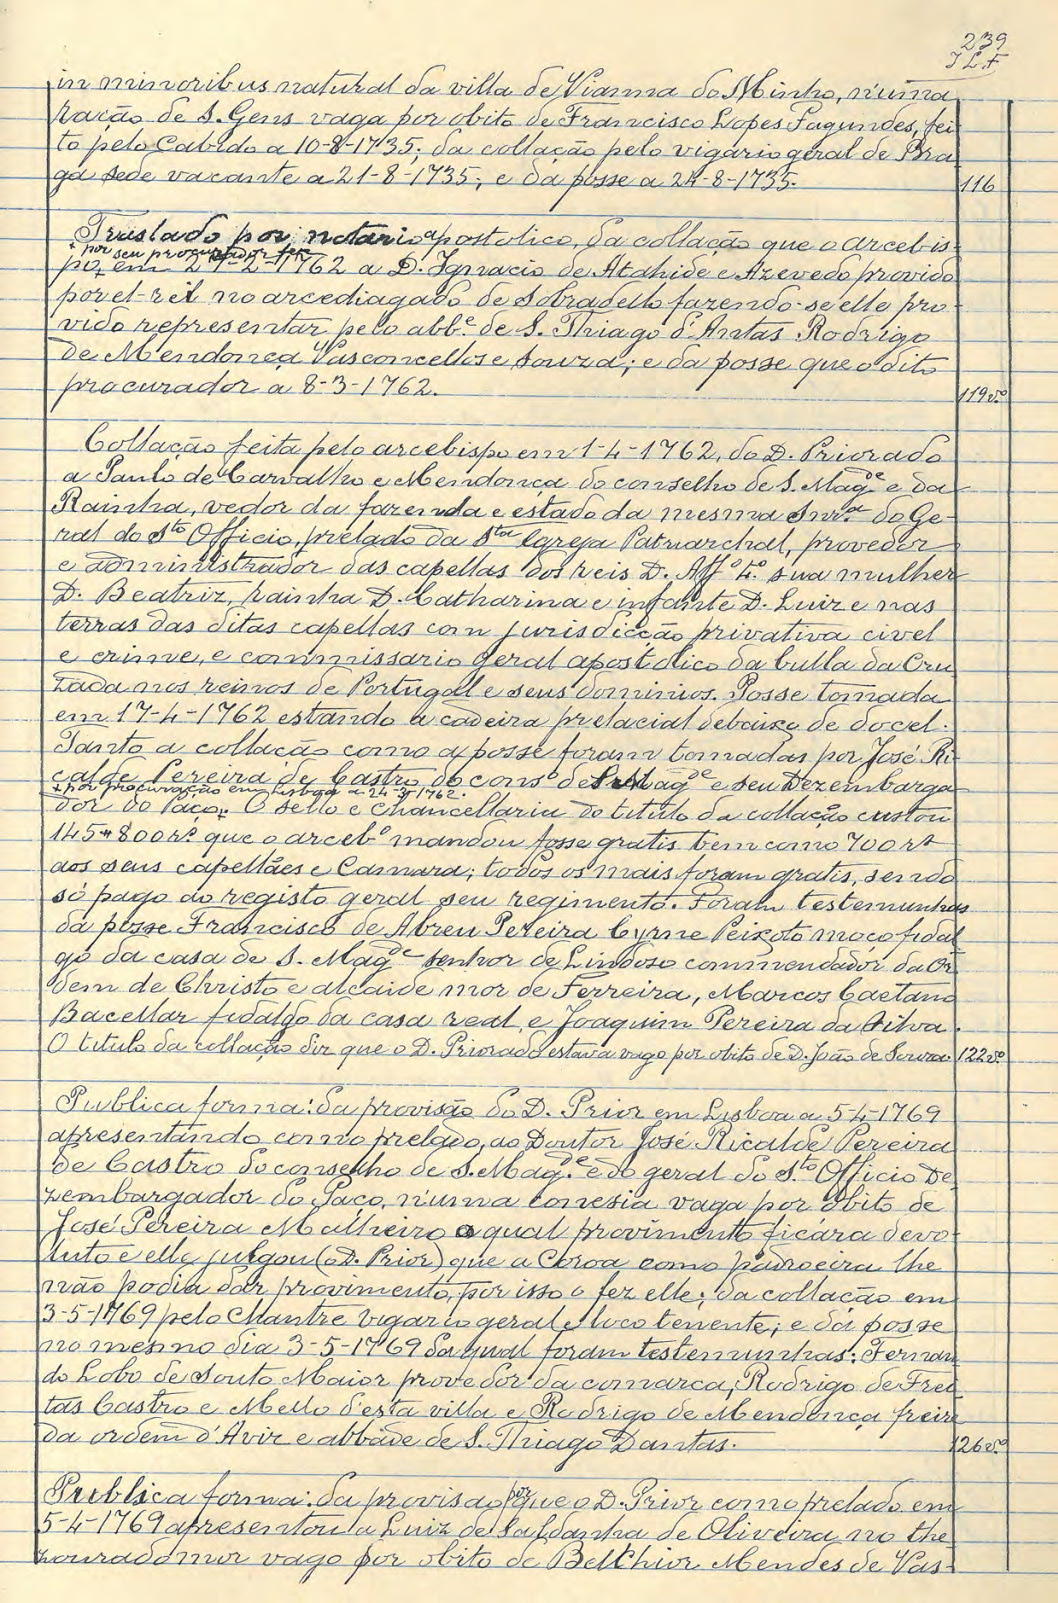 239
J L F
in minoribus natural da villa de Vianna do Minho, n'uma
ração de S. Gens vaga por obito de Francisco Lopes Fagundes, fei-
to pelo Cabido a 10-8-1735; da collação pelo vigario geral de Bra-
ga sede vacante a 21-8-1735; e da posse a 24-8-1735. 116
Traslado por notario apostolico, da collação que o arcebis-
+ por seu procurador fez
po, + em 27-2-1762 a D. Ignacio de Atahide e Azevedo provido
por el-rei no arcediagado de Sobradello fazendo-se elle pro-
vido representar pelo abb.e de S. Thiago d'Antas Rodrigo
de Mendonça Vasconcellos e Souza; e da posse que o dito
procurador a 8-3-1762. 119v.º
Collação feita pelo arcebispo em 1-4-1762, do D. Priorado
a Paulo de Carvalho e Mendonça do conselho de S. Mag.de e da
Rainha, vedor da fazenda e estado da mesma Snr.a do Ge-
ral do S.to Officio, prelado da S.ta Egreja Patriarchal, provedor
e administrador das capellas dos reis D. Aff.º 4.º sua mulher
D. Beatriz, rainha D. Catharina e infante D. Luiz e nas
terras das ditas capellas com jurisdicção privativa civel
e crime, e commissario geral apostolico da bulla da Cru-
zada nos reinos de Portugal e seus dominios. Posse tomada
em 17-4-1762 estando a cadeira prelacial debaixo de docel.
Tanto a collação como a posse foram tomadas por José Ri-
calde Pereira de Castro do cons.º de S. Mag.de e seu Dezembarga-
+ por procuração em Lisboa a 24-3-1762.
dor do Paço. + O sello e chancellaria do titulo da collação custou
145#800 rs. que o arceb.º mandou fosse gratis bem como 700 rs
aos seus capellães e Camara; todos os mais foram gratis, sendo
só pago do registo geral seu regimento. Foram testemunhas
da posse Francisco de Abreu Pereira Cyrne Peixoto moço fidal-
go da casa de S. Mag.de senhor de Lindoso commendador da Or-
dem de Christo e alcaide mor de Ferreira, Marcos Caetano
Bacellar fidalgo da casa real, e Joaquim Pereira da Silva.
O titulo da collação diz que o D. Priorado estava vago por obito de D. João de Souza. 122v.º
Publica forma: da provisão do D. Prior em Lisboa a 5-4-1769
apresentando como prelado, ao Doutor José Ricalde Pereira
de Castro do conselho de S. Mag.de e do geral do S.to Officio De-
zembargador do Paço, n'uma conesia vaga por obito de
José Pereira Malheiro o qual provimento ficára devo-
luto e elle julgou (o D. Prior) que a Coroa como padroeira lhe
não podia dar provimento, por isso o fez elle; da collação em
3-5-1769 pelo Chantre vigario geral e loco tenente; e da posse
no mesmo dia 3-5-1769 da qual foram testemunhas: Fernan-
do Lobo de Souto Maior provedor da comarca, Rodrigo de Frei-
tas Castro e Mello d'esta villa e Rodrigo de Mendonça freire
da ordem d'Aviz e abbade de S. Thiago Dantas. 126v.º
Publica forma: da provisão por que o D. Prior como prelado em
5-4-1769 apresentou a Luiz de Saldanha de Oliveira no the-
zourado mor vago por obito de Belchior Mendes de Vas-